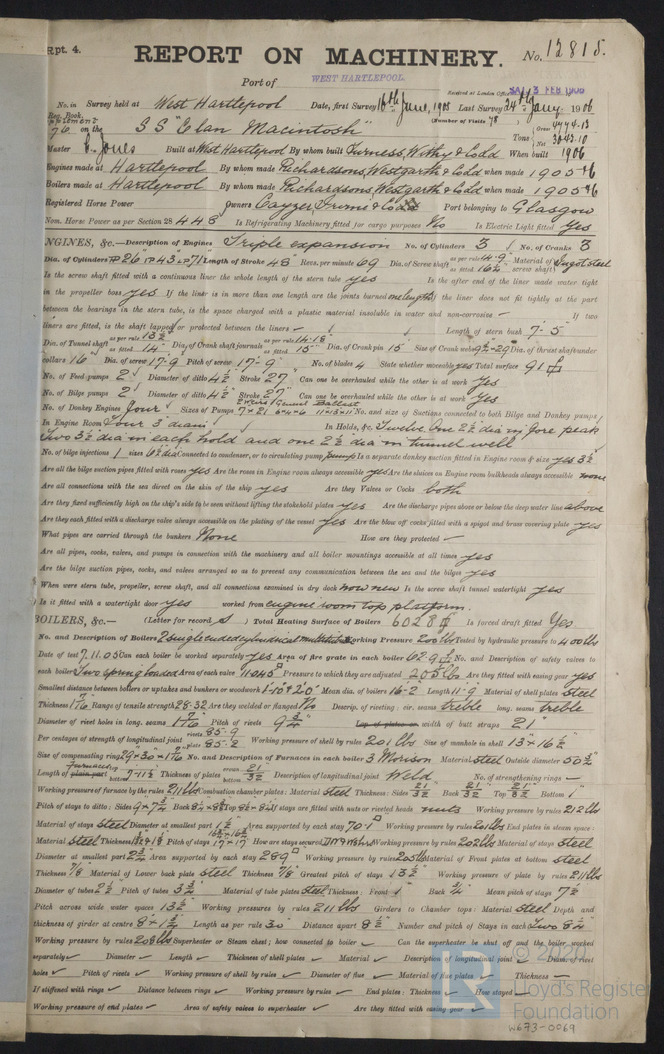 Rpt. 4.
REPORT ON MACHINERY.
No. 12815.
Port of WEST HARTLEPOOL
Received at London Office SAT. 3 FEB 1906
No. in Survey held at West Hartlepool Date, first Survey 16th June, 1905 Last Survey 24th Jany 1906
Reg. Book. (Number of Visits 78)
Supplement
76 on the SS "Clan Macintosh" Tons { Gross 4774.13 Net 3043.10
Master Jones Built at West Hartlepool By whom built Furness, Withy & Co Ld When built 1906
Engines made at Hartlepool By whom made Richardsons, Westgarth & Co Ld when made 1905 & 6
Boilers made at Hartlepool By whom made Richardsons, Westgarth & Co Ld when made 1905 & 6
Registered Horse Power Owners Cayzer, Irvine & Co Ld Port belonging to Glasgow
Nom. Horse Power as per Section 28 448 Is Refrigerating Machinery fitted for cargo purposes No Is Electric Light fitted Yes
ENGINES, &c.—Description of Engines Triple expansion No. of Cylinders 3 No. of Cranks 3
Dia. of Cylinders HP 26" IP 43" LP 71" Length of Stroke 48" Revs. per minute 69 Dia. of Screw shaft as per rule 14.9" as fitted 16¼" Material of screw shaft Ingot steel
Is the screw shaft fitted with a continuous liner the whole length of the stern tube yes Is the after end of the liner made water tight
in the propeller boss yes If the liner is in more than one length are the joints burned one length If the liner does not fit tightly at the part
between the bearings in the stern tube, is the space charged with a plastic material insoluble in water and non-corrosive – If two
liners are fitted, is the shaft lapped or protected between the liners – Length of stern bush 7'-5"
Dia. of Tunnel shaft as per rule 13½" as fitted 14" Dia. of Crank shaft journals as per rule 14.18 as fitted 15" Dia. of Crank pin 15" Size of Crank webs Dia. of thrust shaft under
collars 16" Dia. of screw 17'-9" Pitch of screw 17'-9" No. of blades 4 State whether moveable yes Total surface 91
No. of Feed pumps 2 Diameter of ditto 4½" Stroke 27" Can one be overhauled while the other is at work Yes
No. of Bilge pumps 2 Diameter of ditto 4½" Stroke 27" Can one be overhauled while the other is at work Yes
No. of Donkey Engines Four Sizes of Pumps 7"×21" 6×4×6 11"×13"×11" No. and size of Suctions connected to both Bilge and Donkey pumps
In Engine Room Four 3" diam In Holds, &c. Twelve. One 2½" dia in fore peak
Two 3½" dia in each hold and one 2½" dia in tunnel well
No. of bilge injections 1 sizes 6½" dia Connected to condenser, or to circulating pump Pump Is a separate donkey suction fitted in Engine room & size yes 3½"
Are all the bilge suction pipes fitted with roses yes Are the roses in Engine room always accessible yes Are the sluices on Engine room bulkheads always accessible none
Are all connections with the sea direct on the skin of the ship yes Are they Valves or Cocks both
Are they fixed sufficiently high on the ship's side to be seen without lifting the stokehold plates yes Are the discharge pipes above or below the deep water line above
Are they each fitted with a discharge valve always accessible on the plating of the vessel yes Are the blow off cocks fitted with a spigot and brass covering plate yes
What pipes are carried through the bunkers None How are they protected –
Are all pipes, cocks, valves, and pumps in connection with the machinery and all boiler mountings accessible at all times yes
Are the bilge suction pipes, cocks, and valves arranged so as to prevent any communication between the sea and the bilges yes
When were stern tube, propeller, screw shaft, and all connections examined in dry dock now new Is the screw shaft tunnel watertight yes
Is it fitted with a watertight door yes worked from engine room top platform.
BOILERS, &c.— (Letter for record S) Total Heating Surface of Boilers 6028 Is forced draft fitted Yes
No. and Description of Boilers 2 single ended cylindrical multitubular Working Pressure 200 lbs Tested by hydraulic pressure to 400 lbs
Date of test 7.11.05 Can each boiler be worked separately yes Area of fire grate in each boiler 62.9 No. and Description of safety valves to
each boiler Two spring loaded Area of each valve 11.045" Pressure to which they are adjusted 205 lbs Are they fitted with easing gear yes
Smallest distance between boilers or uptakes and bunkers or woodwork 1'-10" & 2'-0" Mean dia. of boilers 16'-2" Length 11'-9" Material of shell plates Steel
Thickness 1 7/16 Range of tensile strength 28-32 Are they welded or flanged No Descrip. of riveting: cir. seams treble long. seams treble
Diameter of rivet holes in long. seams 1 7/16 Pitch of rivets 9¾" Lap of plates or width of butt straps 21"
Per centages of strength of longitudinal joint rivets 85.9 plate 85.2 Working pressure of shell by rules 201 lbs Size of manhole in shell 13" × 16½"
Size of compensating ring No. and Description of Furnaces in each boiler 3 Morison Material steel Outside diameter 50½"
Length of plain part Furnaces top bottom 7'-11½" Thickness of plates crown bottom 21/32 Description of longitudinal joint Weld No. of strengthening rings –
Working pressure of furnace by the rules 211 lbs Combustion chamber plates: Material steel Thickness: Sides 21/32 Back 21/32 Top 21/32" Bottom 1"
Pitch of stays to ditto: Sides 9×7¾" Back 8¾×8⅞ Top 8¾×8¼ If stays are fitted with nuts or riveted heads nuts Working pressure by rules 212 lbs
Material of stays Steel Diameter at smallest part 1½" Area supported by each stay 70.1 Working pressure by rules 201 lbs End plates in steam space:
Material steel Thickness Pitch of stays 17"×17" How are stays secured Working pressure by rules 202 lbs Material of stays Steel
Diameter at smallest part 2¾" Area supported by each stay 289" Working pressure by rules 205 lbs Material of Front plates at bottom steel
Thickness 7/8" Material of Lower back plate Steel Thickness 7/8" Greatest pitch of stays 13½" Working pressure of plate by rules 211 lbs
Diameter of tubes 2½" Pitch of tubes 3¾" Material of tube plates Steel Thickness: Front 1" Back ¾" Mean pitch of stays 7½"
Pitch across wide water spaces 13½" Working pressures by rules 211 lbs Girders to Chamber tops: Material steel Depth and
thickness of girder at centre 8"×1¾" Length as per rule 30" Distance apart 8½" Number and pitch of Stays in each Two 8¾"
Working pressure by rules 208 lbs Superheater or Steam chest; how connected to boiler Can the superheater be shut off and the boiler worked
separately Diameter Length Thickness of shell plates Material Description of longitudinal joint Diam. of rivet
holes Pitch of rivets Working pressure of shell by rules Diameter of flue Material of flue plates Thickness
If stiffened with rings Distance between rings Working pressure by rules End plates: Thickness How stayed
Working pressure of end plates Area of safety valves to superheater Are they fitted with easing gear
© 2020
Lloyd's Register
Foundation
W673-0069